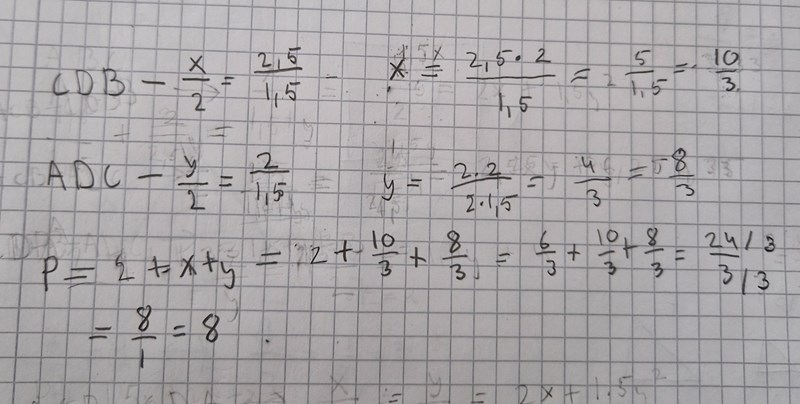 CDB - x/2 = 2,5/1,5 x = 2,5 · 2/1,5 = 5/1,5 = 10/3
ADC - y/2 = 2/1,5 y = 2·2/2·1,5 = 4/3 = 8/3
P = 2 + x + y = 2 + 10/3 + 8/3 = 6/3 + 10/3 + 8/3 = 24/3 /3 /3
= 8/1 = 8 .
= = 2x + 1.5